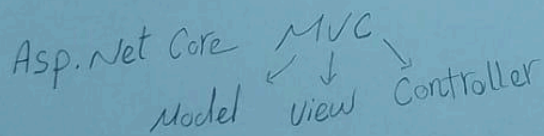 Asp.Net Core MVC
Model View Controller